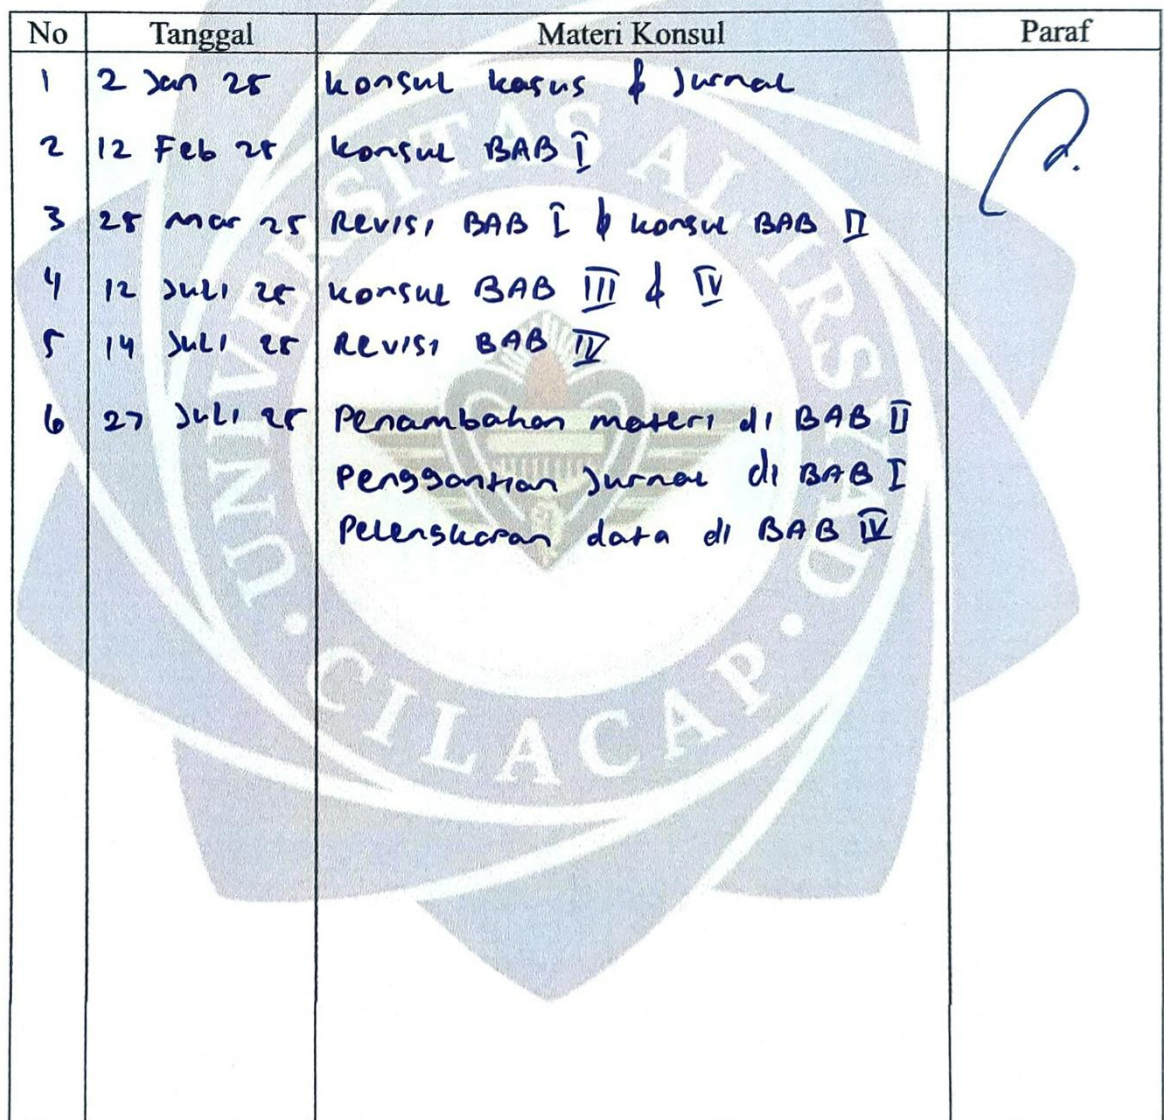 No Tanggal Materi Konsul Paraf
1 2 Jan 25 Konsul kasus & Jurnal
2 12 Feb 25 Konsul BAB I
3 25 Mar 25 Revisi BAB I & Konsul BAB II
4 12 Juli 25 Konsul BAB III & IV
5 14 Juli 25 Revisi BAB IV
6 27 Juli 25 Penambahan materi di BAB II
Penggantian Jurnal di BAB I
Pelengkapan data di BAB IV
UNIVERSITAS AL IRSYAD
CILACAP